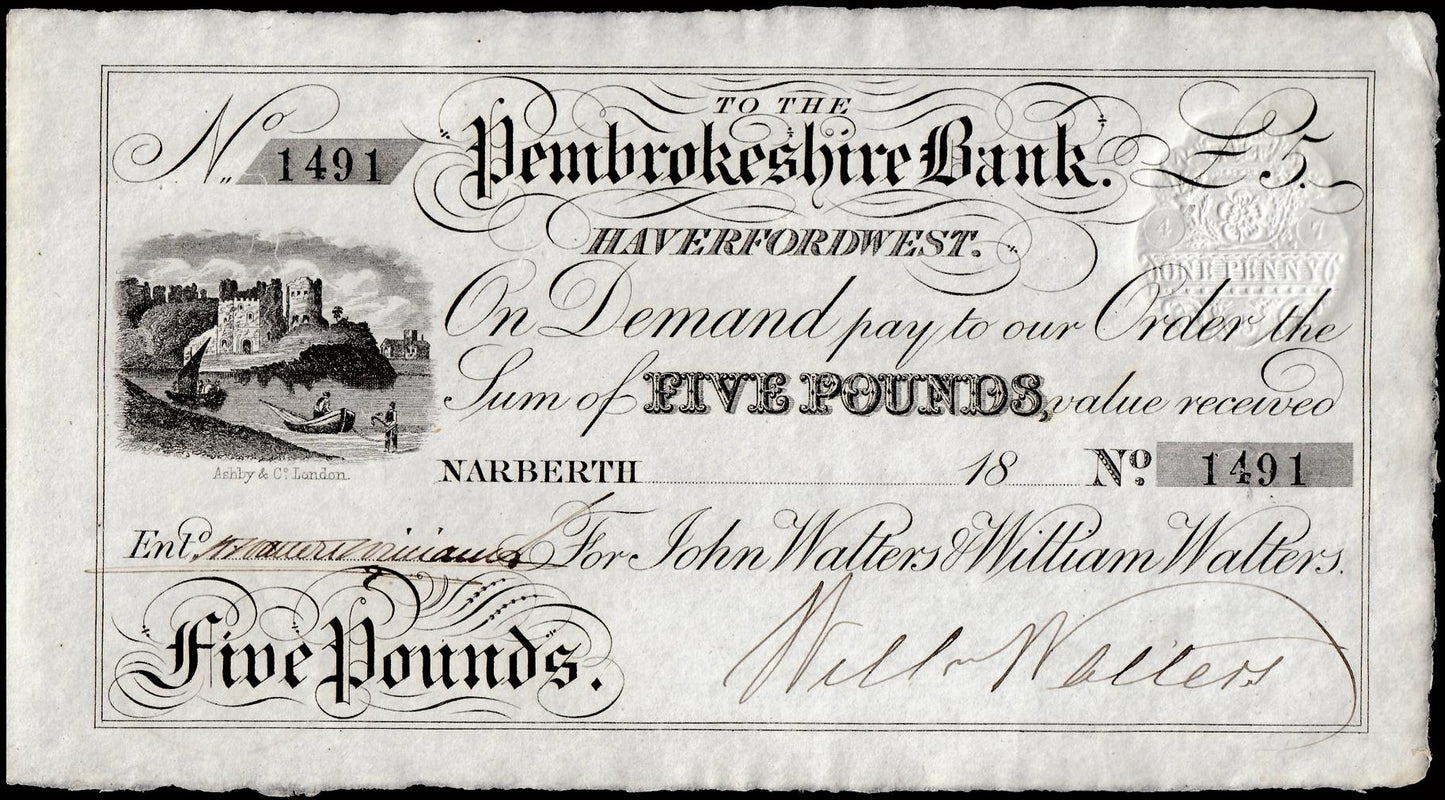 TO THE
Nº 1491 Pembrokeshire Bank. £5.
HAVERFORDWEST.
4 7
ONE PENNY
On Demand pay to our Order the
Sum of FIVE POUNDS, value received
Ashby & Cº. London.
NARBERTH 18 Nº. 1491
Entd. For John Walters & William Walters.
Five Pounds.
Willm Walters